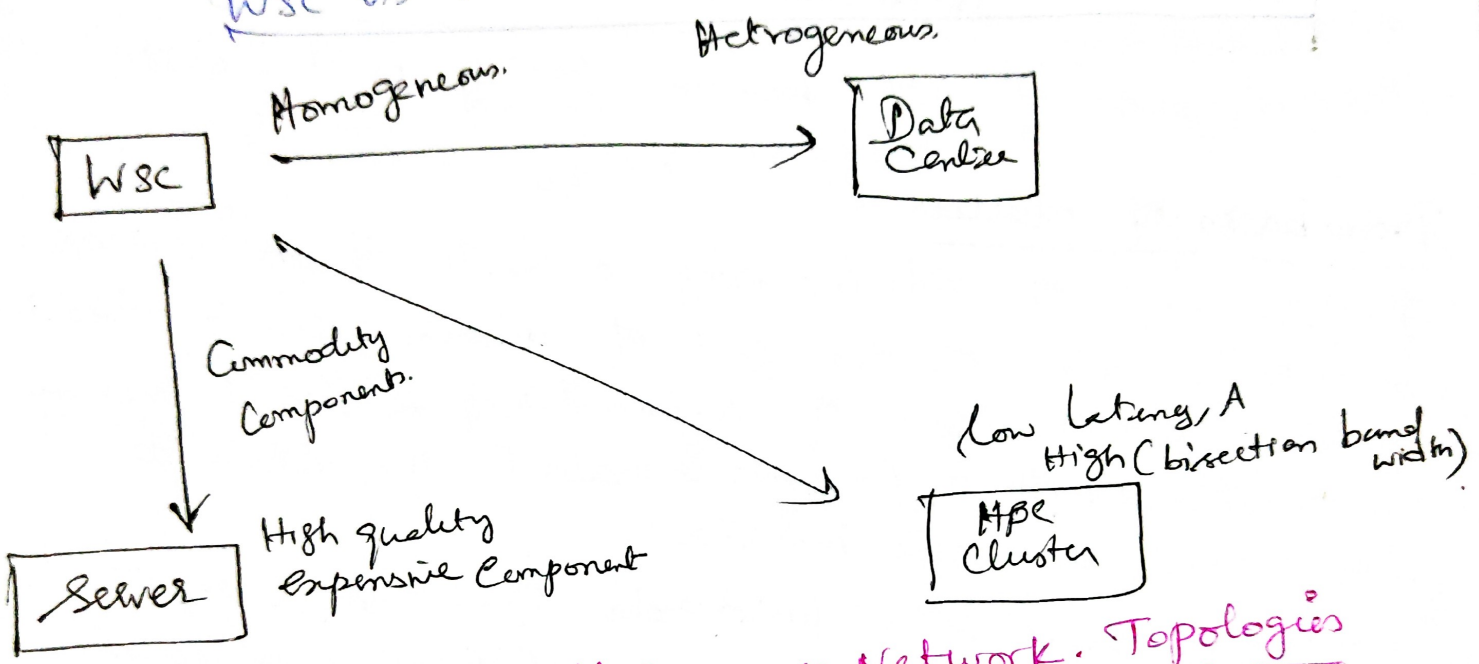 WSC
Hetrogeneous.
Homogeneous.
Data
Center
WSC
Commodity
Components.
low latency, A
High (bisection band
width)
High quality
expensive Component
HPC
Cluster
Server
Network. Topologies